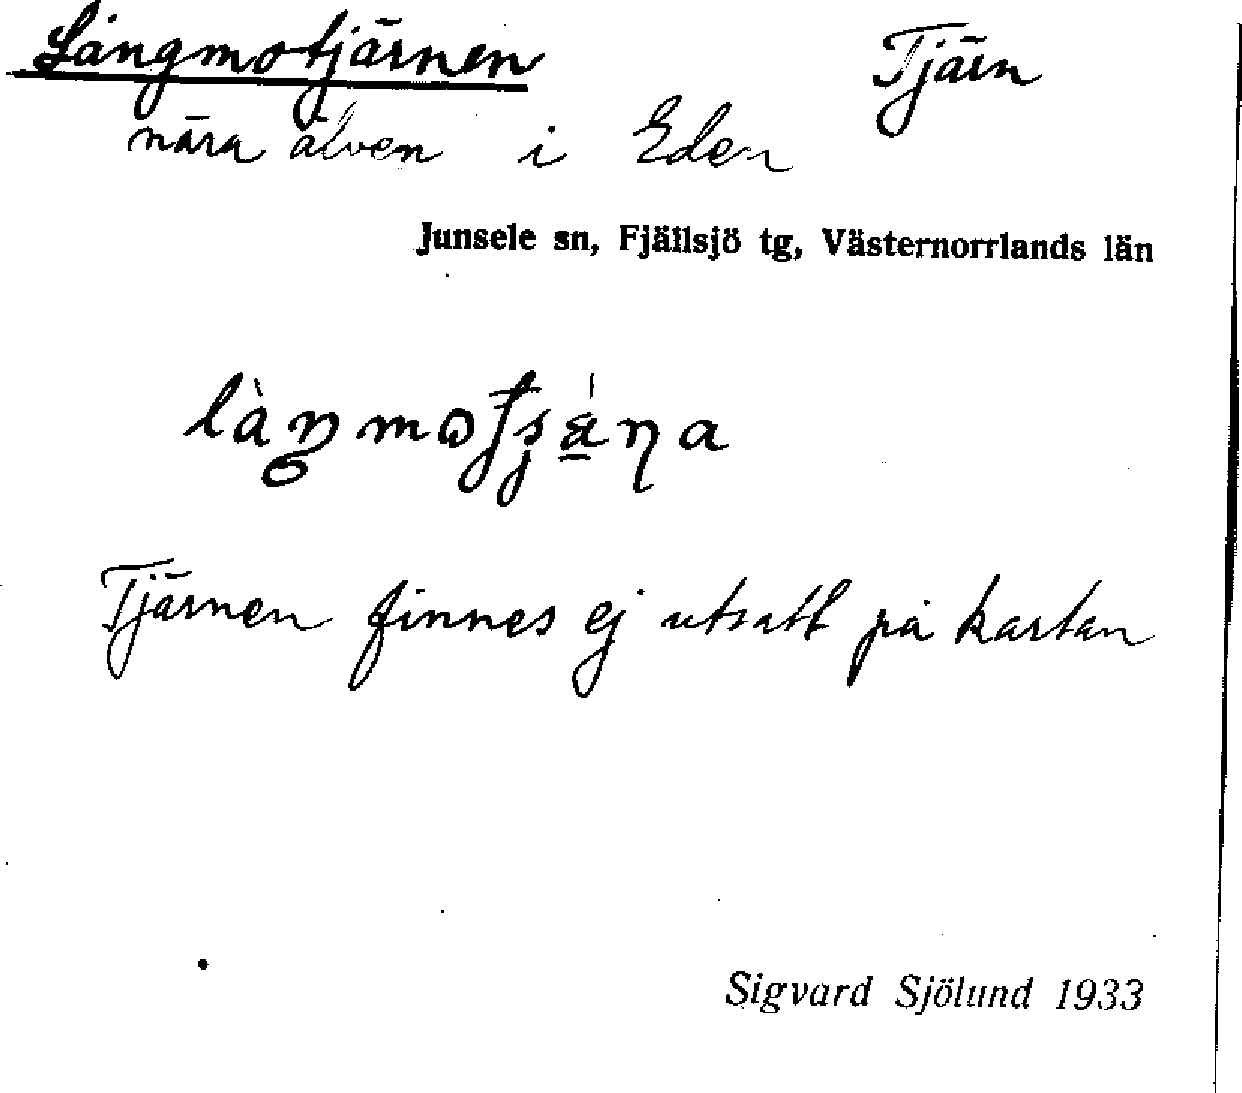 Långmotjärnen Tjärn
nära älven i Eden
Junsele sn, Fjällsjö tg, Västernorrlands län
Tjärnen finnes ej utsatt på kartan
Sigvard Sjölund 1933